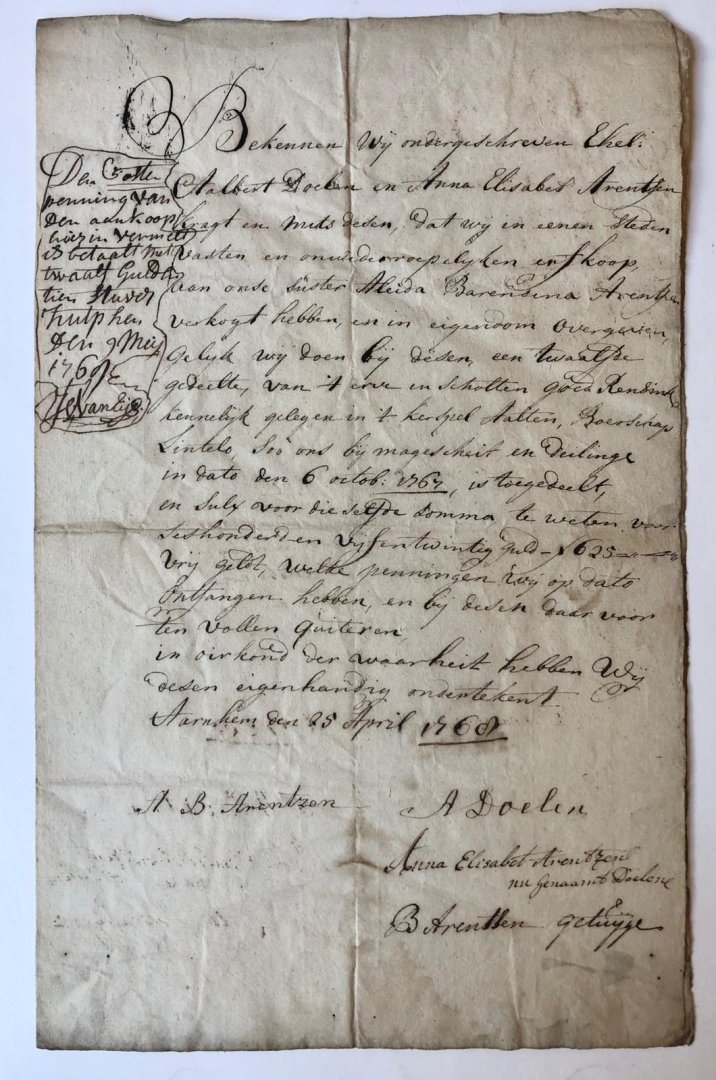 Bekennen Wij ondergeschreven Ehel:
Aalbert Doelen en Anna Elisabet Arentsen
kragt en mits desen, dat wij in eenen steden
vasten en onwederroepelijken erfkoop,
aan onse suster Aleida Barendina Arentzen
verkogt hebben, en in eigendom overgeven,
gelijk wij doen bij desen, een twaalfde
gedeelte, van 't erve en scholten goed Rensink
kennelijk gelegen in 't kerspel Aalten, Boerschap
Lintelo, soo ons bij magescheit en deilinge
in dato den 6 octob: 1767, is toegedeelt,
en sulx voor die selfde somma, te weten voor
seshonderd en vyfentwintig guld - f 625
vrij geldt, welke penningen wij op dato
ontfangen hebben, en bij desen daar voor
ten vollen quiteren
in oirkond der waarheit hebben Wij
desen eigenhandig ondertekent
Aarnhem den 25 April 1768
Den 50sten
penning van
den aankoop
hier in vermelt
is betaalt met
twaalf Guld
tien stuver
Zutphen
den 9 Meij
1768
A. B. Arentzen
A Doelen
Anna Elisabet Arentzen
nu genaamt Doelen
B Arentsen getuijge